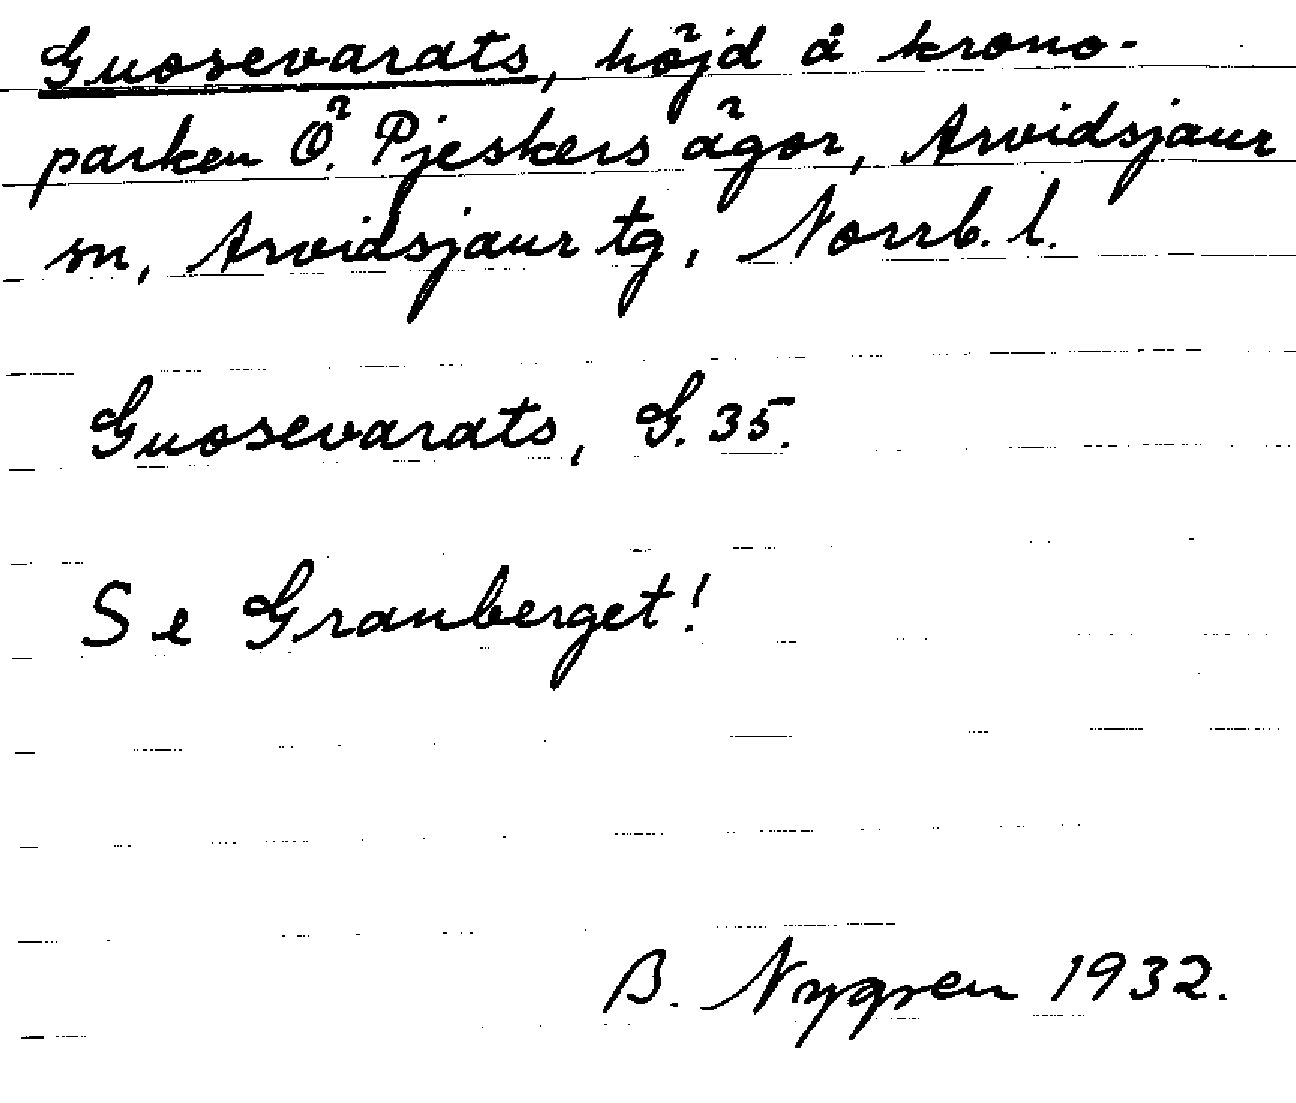 Guosevarats, höjd å krono-
parken Ö. Pjeskers ägor, Arvidsjaur
sn, Arvidsjaur tg, Norrb. l.
Guosevarats, G. 35.
Se Granberget!
B. Nygren 1932.